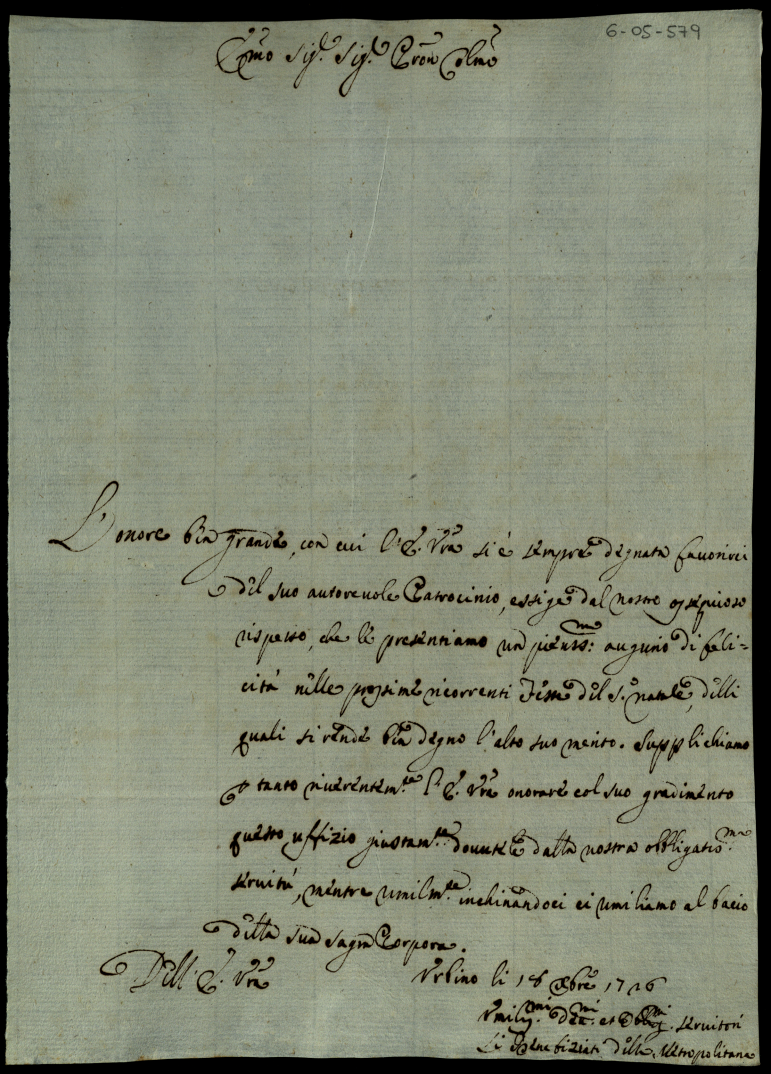 6-05-579
Emo Sig.r Sig.r Pron Colmo
L'onore ben grande, con cui l'E. Vra si è sempre degnata favorirci
del suo autorevole Patrocinio, essige dal nostro ossequioso
rispetto, che le presentiamo un pieniss:mo augurio di feli=
cità nelle prossime ricorrenti Feste del S.o Natale, delli
quali si rende ben degno l'alto suo merito. Supplichiamo
p tanto riverentem.te l'E. Vra onorare col suo gradimento
questo uffizio giustam.te dovutole dalla nostra obbligatis.ma
servitù, mentre umilm.te inchinandoci ci umiliamo al bacio
della sua sagra Porpora.
Dell'E. Vra
Urbino li 18 Xbre 1726
Umilis.mi Dev.mi et Obblig.mi servitori
Li Benefiziati della Metropolitana